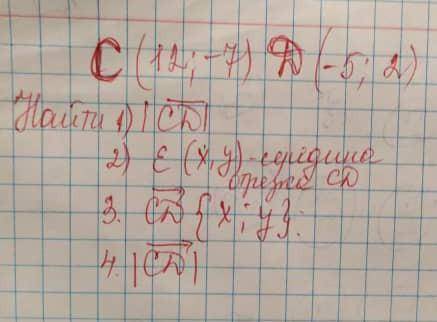 C (12; -7) D (-5; 2)
Найти 1) |CD|
2) E (x, y) - середина
отрезка CD
3. CD {x; y}.
4. |CD|